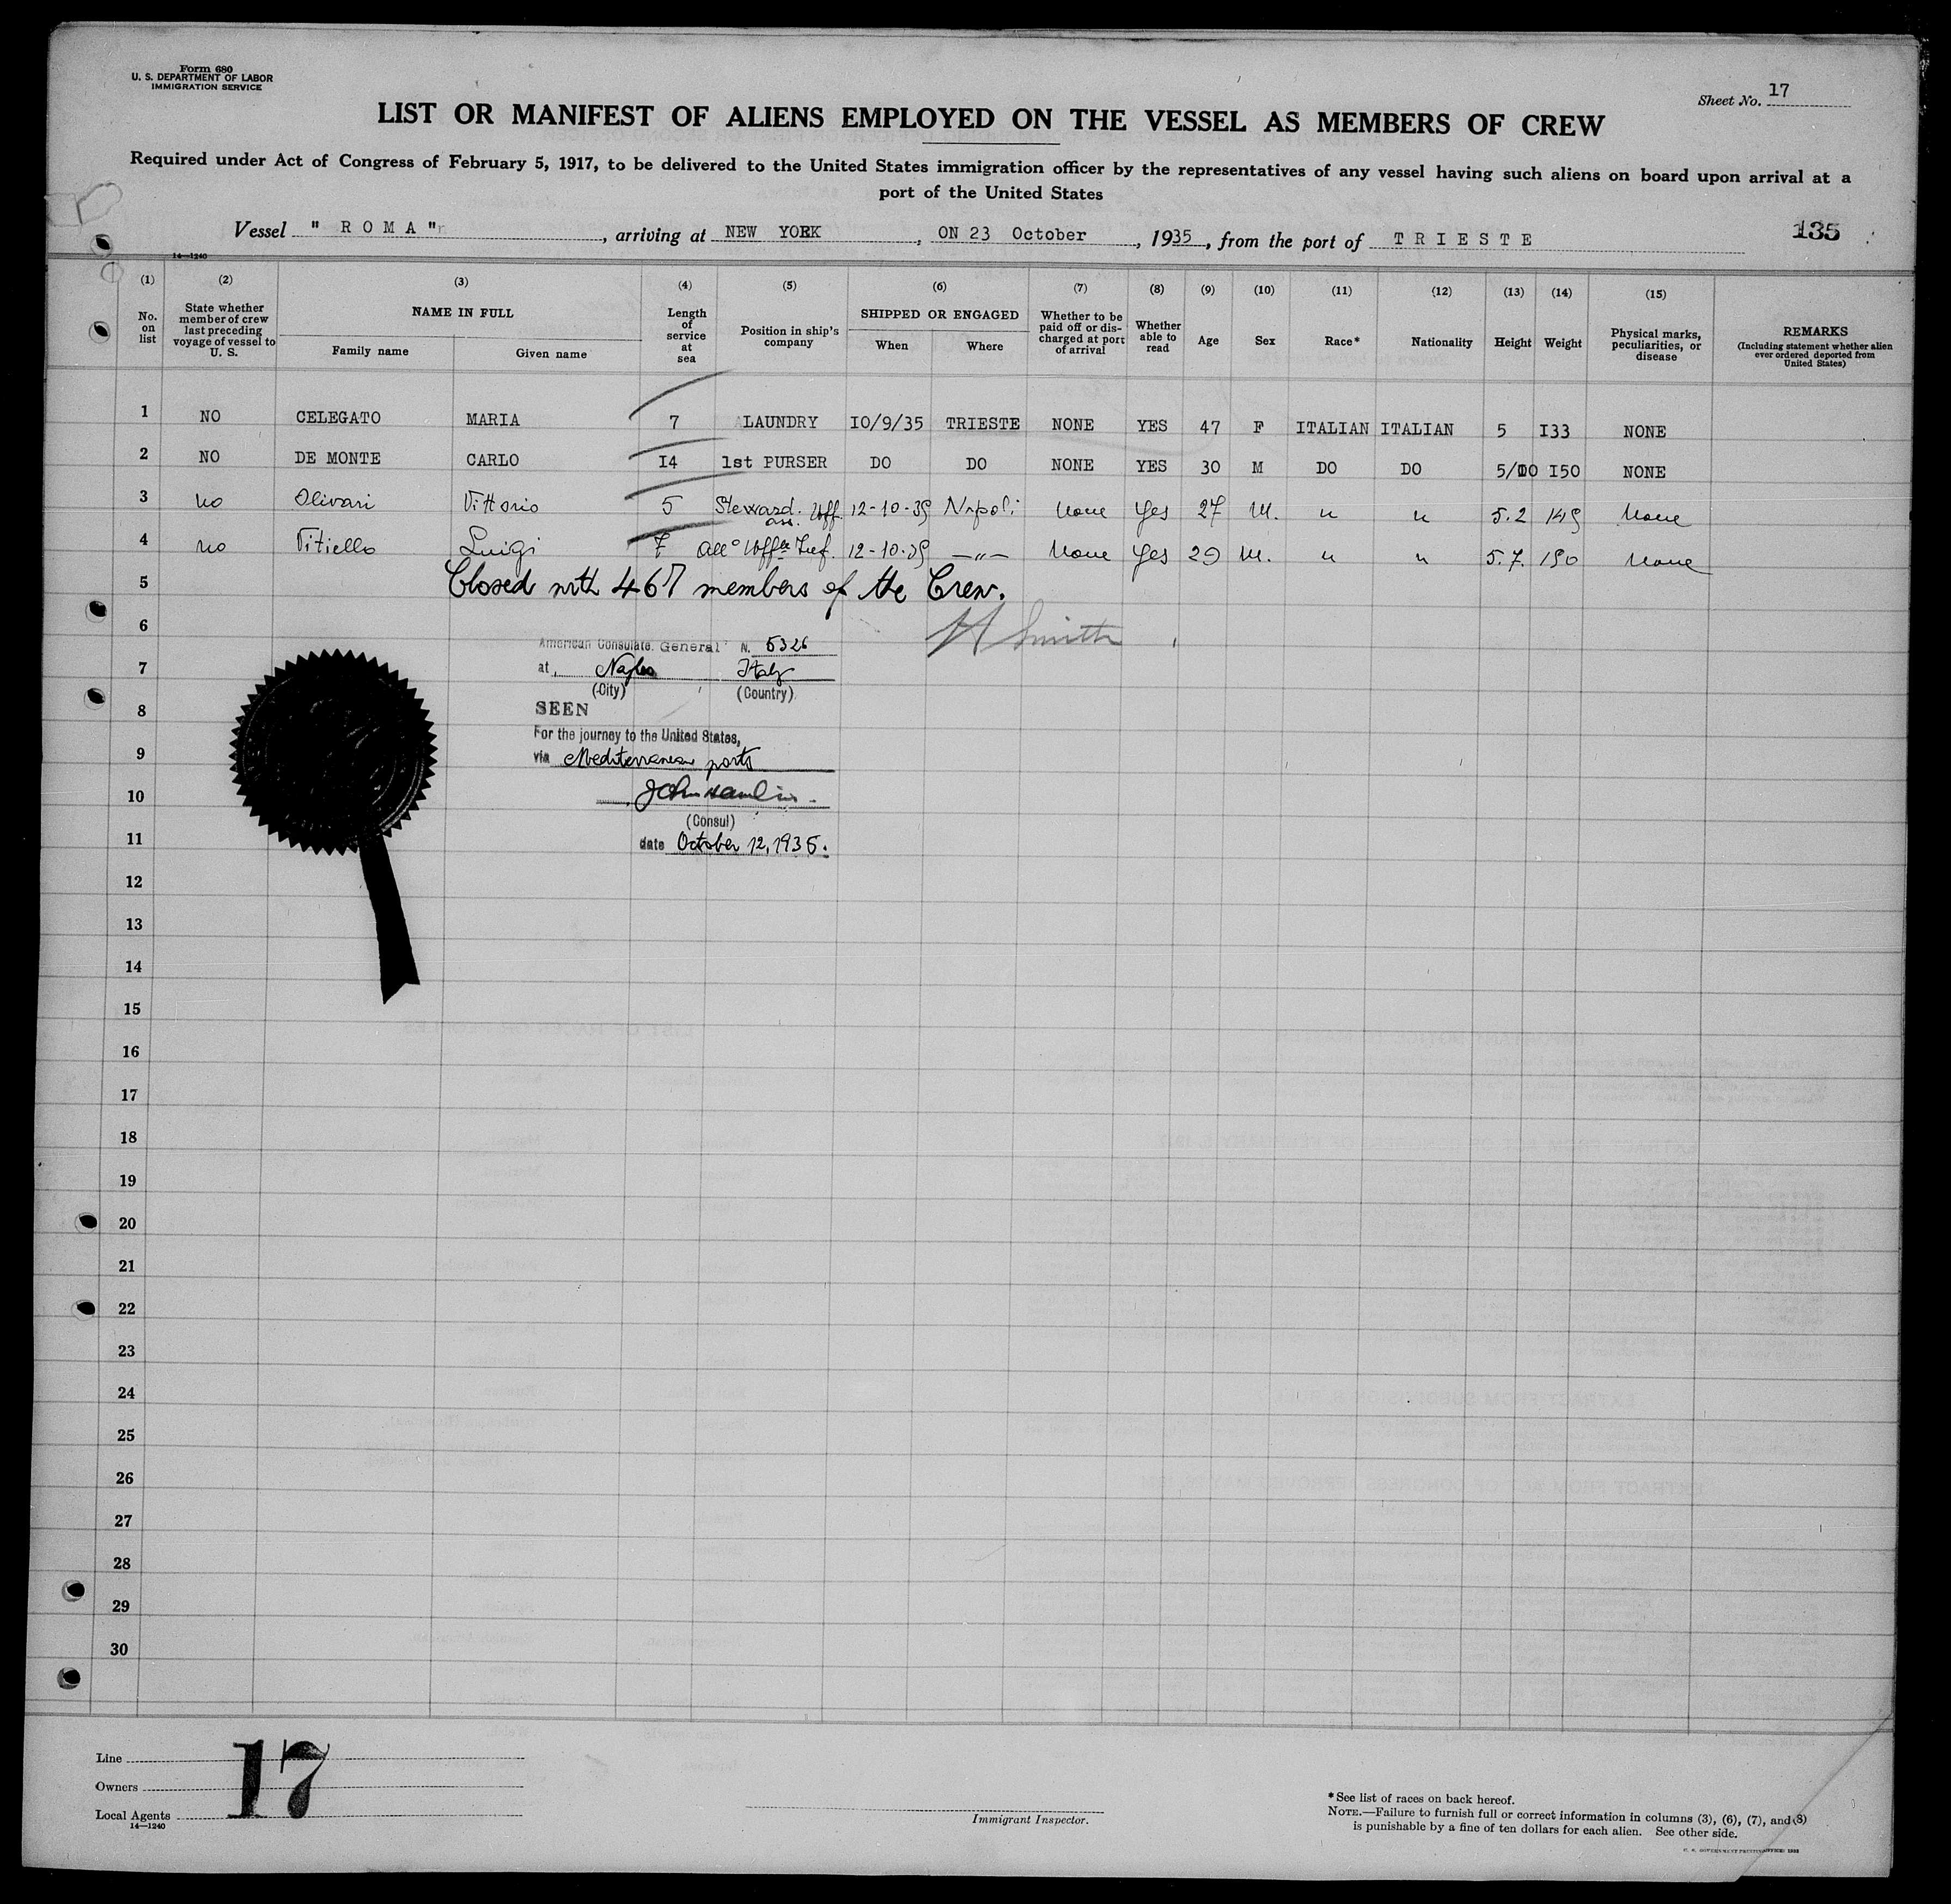 Form 680
U. S. DEPARTMENT OF LABOR
IMMIGRATION SERVICE
Sheet No. 17
LIST OR MANIFEST OF ALIENS EMPLOYED ON THE VESSEL AS MEMBERS OF CREW
Required under Act of Congress of February 5, 1917, to be delivered to the United States immigration officer by the representatives of any vessel having such aliens on board upon arrival at a
port of the United States
Vessel " R O M A ", arriving at NEW YORK, ON 23 October, 1935, from the port of T R I E S T E
135
14—1240
(1) (2) (3) (4) (5) (6) (7) (8) (9) (10) (11) (12) (13) (14) (15)
No. on list
State whether member of crew last preceding voyage of vessel to U. S.
NAME IN FULL
Family name
Given name
Length of service at sea
Position in ship's company
SHIPPED OR ENGAGED
When
Where
Whether to be paid off or discharged at port of arrival
Whether able to read
Age
Sex
Race*
Nationality
Height
Weight
Physical marks, peculiarities, or disease
REMARKS
(Including statement whether alien ever ordered deported from United States)
1 NO CELEGATO MARIA 7 LAUNDRY IO/9/35 TRIESTE NONE YES 47 F ITALIAN ITALIAN 5 I33 NONE
2 NO DE MONTE CARLO I4 1st PURSER DO DO NONE YES 30 M DO DO I50 NONE
3 no Olivari Vittorio 5 Steward. 12-10-35 Napoli None Yes 27 M. " " 5.2 145 None
4 no Vitiello Luigi 7 12-10-35 —"— None Yes 29 M. " " 5.7. 150 None
5 Closed with 467 members of the Crew.
6 H Smith
American Consulate General N. 5326
7 at, Naples Italy
(City) (Country)
8 SEEN
For the journey to the United States,
9 via Mediterranean ports
10 John Hamlin
(Consul)
11 date October 12, 1935.
12
13
14
15
16
17
18
19
20
21
22
23
24
25
26
27
28
29
30
Line
17
Owners
Local Agents
14—1240
Immigrant Inspector.
*See list of races on back hereof.
NOTE.—Failure to furnish full or correct information in columns (3), (6), (7), and (8)
is punishable by a fine of ten dollars for each alien. See other side.